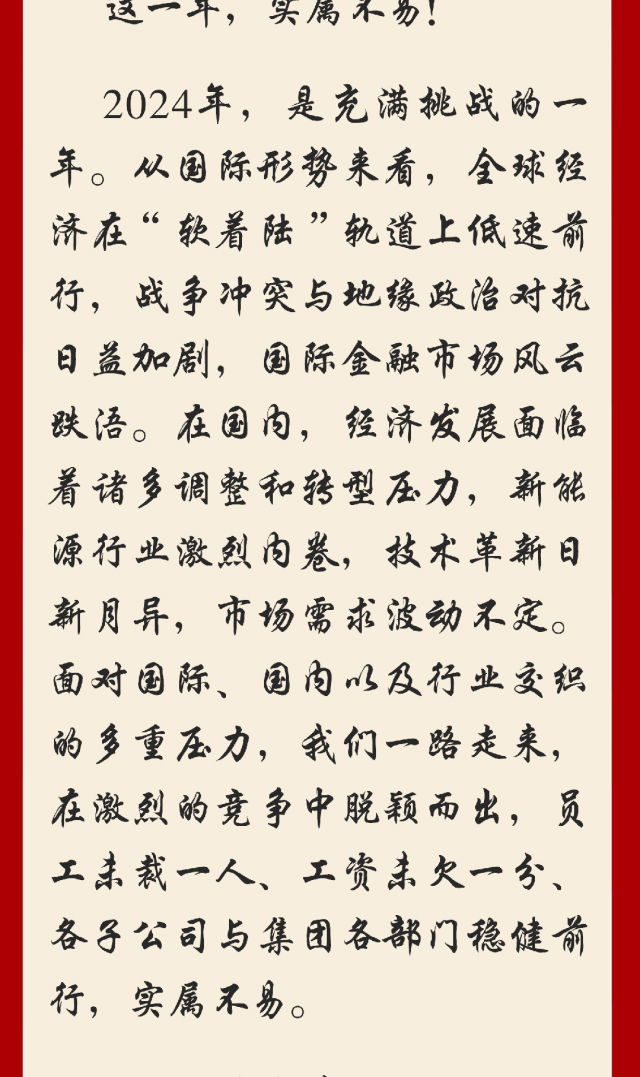 这一年，实属不易！
2024年，是充满挑战的一
年。从国际形势来看，全球经
济在“软着陆”轨道上低速前
行，战争冲突与地缘政治对抗
日益加剧，国际金融市场风云
跌浯。在国内，经济发展面临
着诸多调整和转型压力，新能
源行业激烈内卷，技术革新日
新月异，市场需求波动不定。
面对国际、国内以及行业交织
的多重压力，我们一路走来，
在激烈的竞争中脱颖而出，员
工未裁一人、工资未欠一分、
各子公司与集团各部门稳健前
行，实属不易。